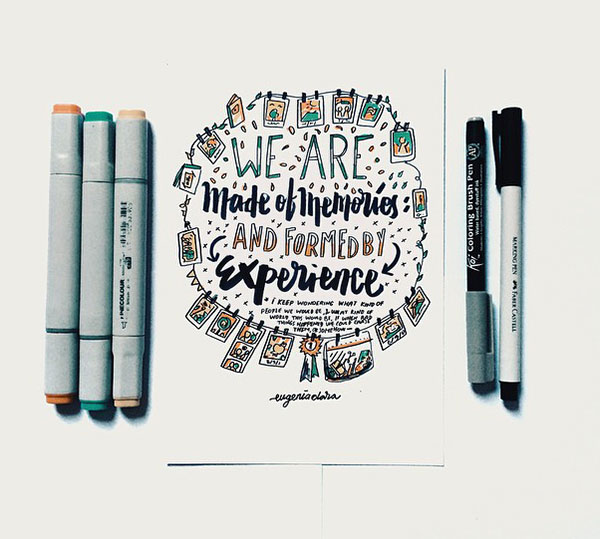 WE ARE
Made of Memories:
AND FORMED BY
Experience
* I KEEP WONDERING WHAT KIND OF
PEOPLE WE WOULD BE, & WHAT KIND OF
WORLD THIS WOULD BE, IF WHEN BAD
THINGS HAPPENED WE COULD ERASE
THEM,
SOMEHOW
eugenia clara
FINECOLOUR
Koi Coloring Brush Pen
MARKING PEN FABER CASTELL